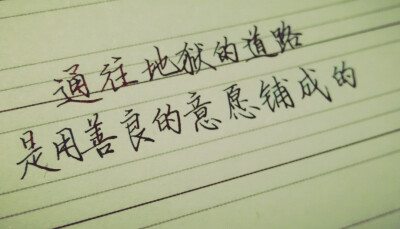 通往地狱的道路
是用善良的意愿铺成的